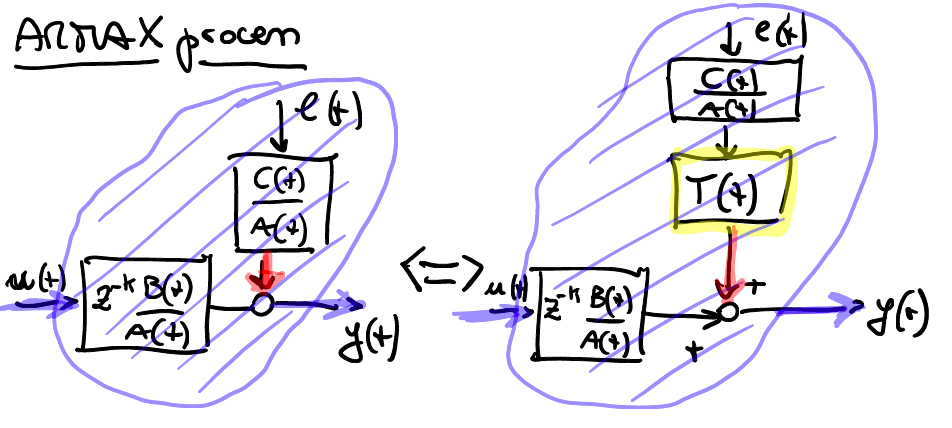 ARMAX process
e(t)
C(z)
A(z)
u(t)
z⁻ᵏ B(z)
A(z)
y(t)
<=>
e(t)
C(z)
A(z)
T(z)
+
u(t)
z⁻ᵏ B(z)
A(z)
+
y(t)